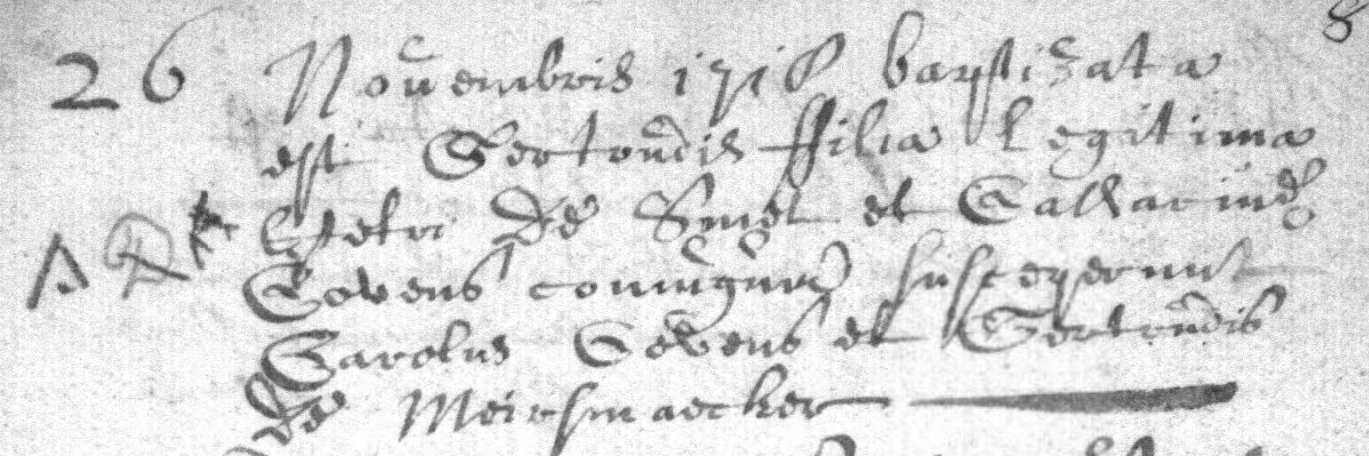 8
26 Novembris 1718 baptizata
est Gertrudis ffilia legitima
petri De Smet et Catharinae
Govens coniugum susceperunt
Carolus Govens et Gertrudis
De Meirsmaecker